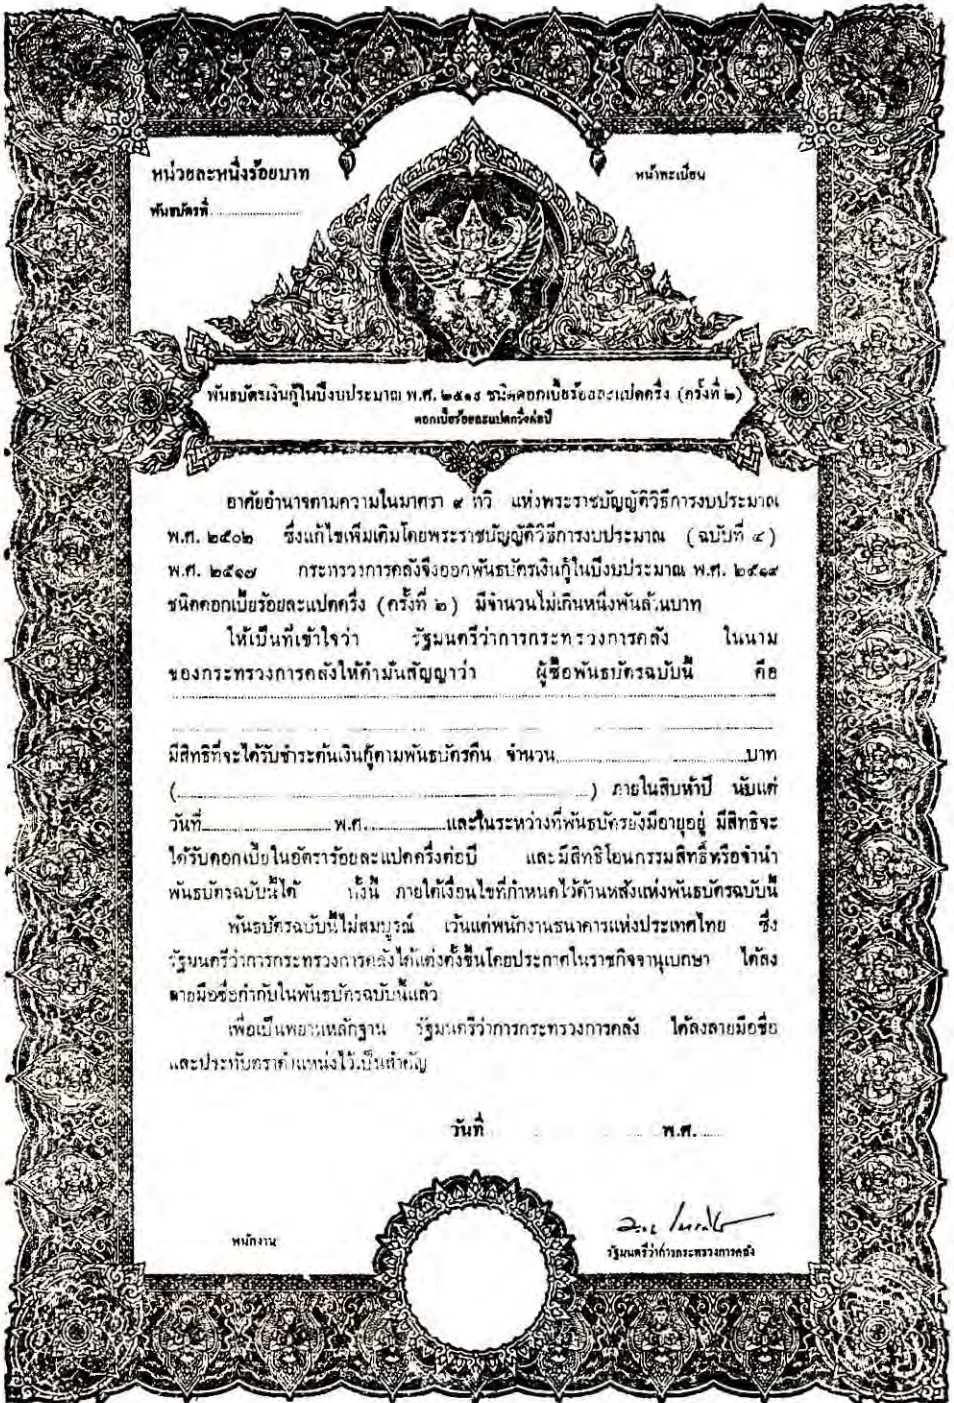 หน่วยละหนึ่งร้อยบาท
หน้าทะเบียน
พันธบัตรที่
พันธบัตรเงินกู้ในปีงบประมาณ พ.ศ. ๒๕๑๙ ชนิดดอกเบี้ยร้อยละแปดครึ่ง (ครั้งที่ ๒)
ดอกเบี้ยร้อยละแปดครึ่งต่อปี
อาศัยอำนาจตามความในมาตรา ๙ ทวิ แห่งพระราชบัญญัติวิธีการงบประมาณ
พ.ศ. ๒๕๐๒ ซึ่งแก้ไขเพิ่มเติมโดยพระราชบัญญัติวิธีการงบประมาณ (ฉบับที่ ๔)
พ.ศ. ๒๕๑๗ กระทรวงการคลังจึงออกพันธบัตรเงินกู้ในปีงบประมาณ พ.ศ. ๒๕๑๙
ชนิดดอกเบี้ยร้อยละแปดครึ่ง (ครั้งที่ ๒) มีจำนวนไม่เกินหนึ่งพันล้านบาท
ให้เป็นที่เข้าใจว่า รัฐมนตรีว่าการกระทรวงการคลัง ในนาม
ของกระทรวงการคลังให้คำมั่นสัญญาว่า ผู้ซื้อพันธบัตรฉบับนี้ คือ
มีสิทธิที่จะได้รับชำระต้นเงินกู้ตามพันธบัตรคืน จำนวน บาท
( ) ภายในสิบห้าปี นับแต่
วันที่ พ.ศ. และในระหว่างที่พันธบัตรยังมีอายุอยู่ มีสิทธิจะ
ได้รับดอกเบี้ยในอัตราร้อยละแปดครึ่งต่อปี และมีสิทธิโอนกรรมสิทธิ์หรือจำนำ
พันธบัตรฉบับนี้ได้ ทั้งนี้ ภายใต้เงื่อนไขที่กำหนดไว้ด้านหลังแห่งพันธบัตรฉบับนี้
พันธบัตรฉบับนี้ไม่สมบูรณ์ เว้นแต่พนักงานธนาคารแห่งประเทศไทย ซึ่ง
รัฐมนตรีว่าการกระทรวงการคลังได้แต่งตั้งขึ้นโดยประกาศในราชกิจจานุเบกษา ได้ลง
ลายมือชื่อกำกับในพันธบัตรฉบับนี้แล้ว
เพื่อเป็นพยานหลักฐาน รัฐมนตรีว่าการกระทรวงการคลัง ได้ลงลายมือชื่อ
และประทับตราตำแหน่งไว้เป็นสำคัญ
วันที่ พ.ศ.
พนักงาน
รัฐมนตรีว่าการกระทรวงการคลัง